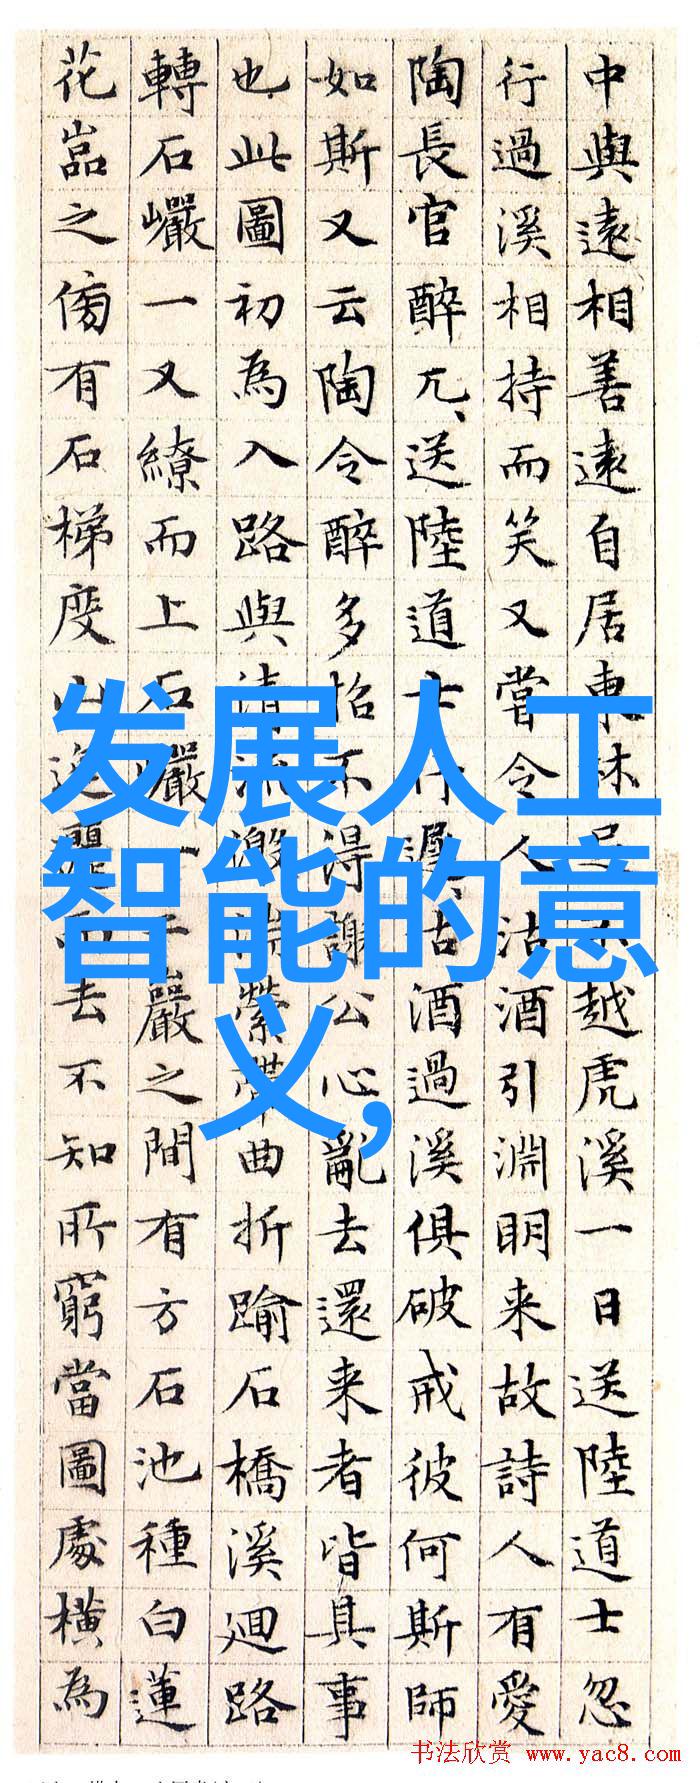 中與遠相善遠自居東林越虎溪一日送陸道士忽
行過溪相持而笑又嘗令人沽酒引淵明来故詩人有愛
陶長官醉兀、送陸道士行遲、沽酒過溪俱破戒彼何斯師
如斯又云陶令醉多招不得謝公心亂去還来者皆其事
也此圖初為入路與清流激湍縈帶曲折踰石橋溪迴路
轉石巖一又繚而上石巖一于巖之間有方石池種白蓮
花嵓之傍有石梯度山迤邐而去不知所窮當圖處橫為
发展人工
智能的意
义,
书法欣赏 www.yac8.com